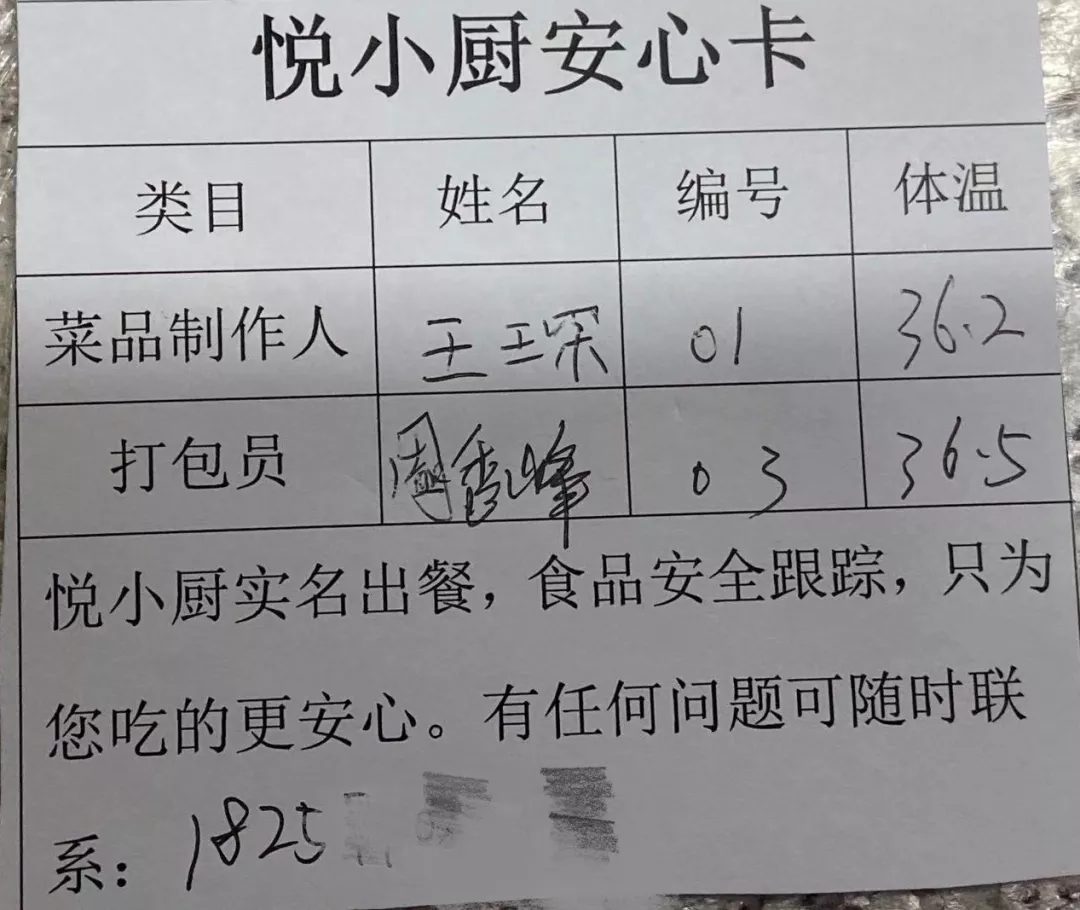 悦小厨安心卡
类目 姓名 编号 体温
菜品制作人 王 01 36.2
打包员 周秀峰 03 36.5
悦小厨实名出餐，食品安全跟踪，只为
您吃的更安心。有任何问题可随时联
系：1825